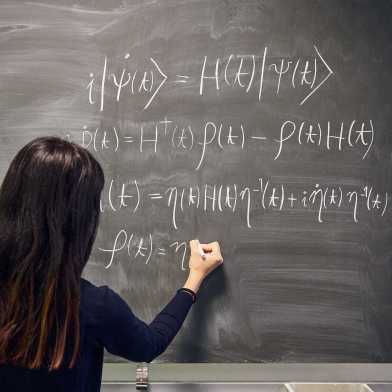 i|ψ̇(t)⟩ = H(t)|ψ(t)⟩
ρ̇(t) = H†(t) ρ(t) − ρ(t)H(t)
(t) = η(t)H(t)η⁻¹(t) + iη̇(t)η⁻¹(t)
ρ(t) = η